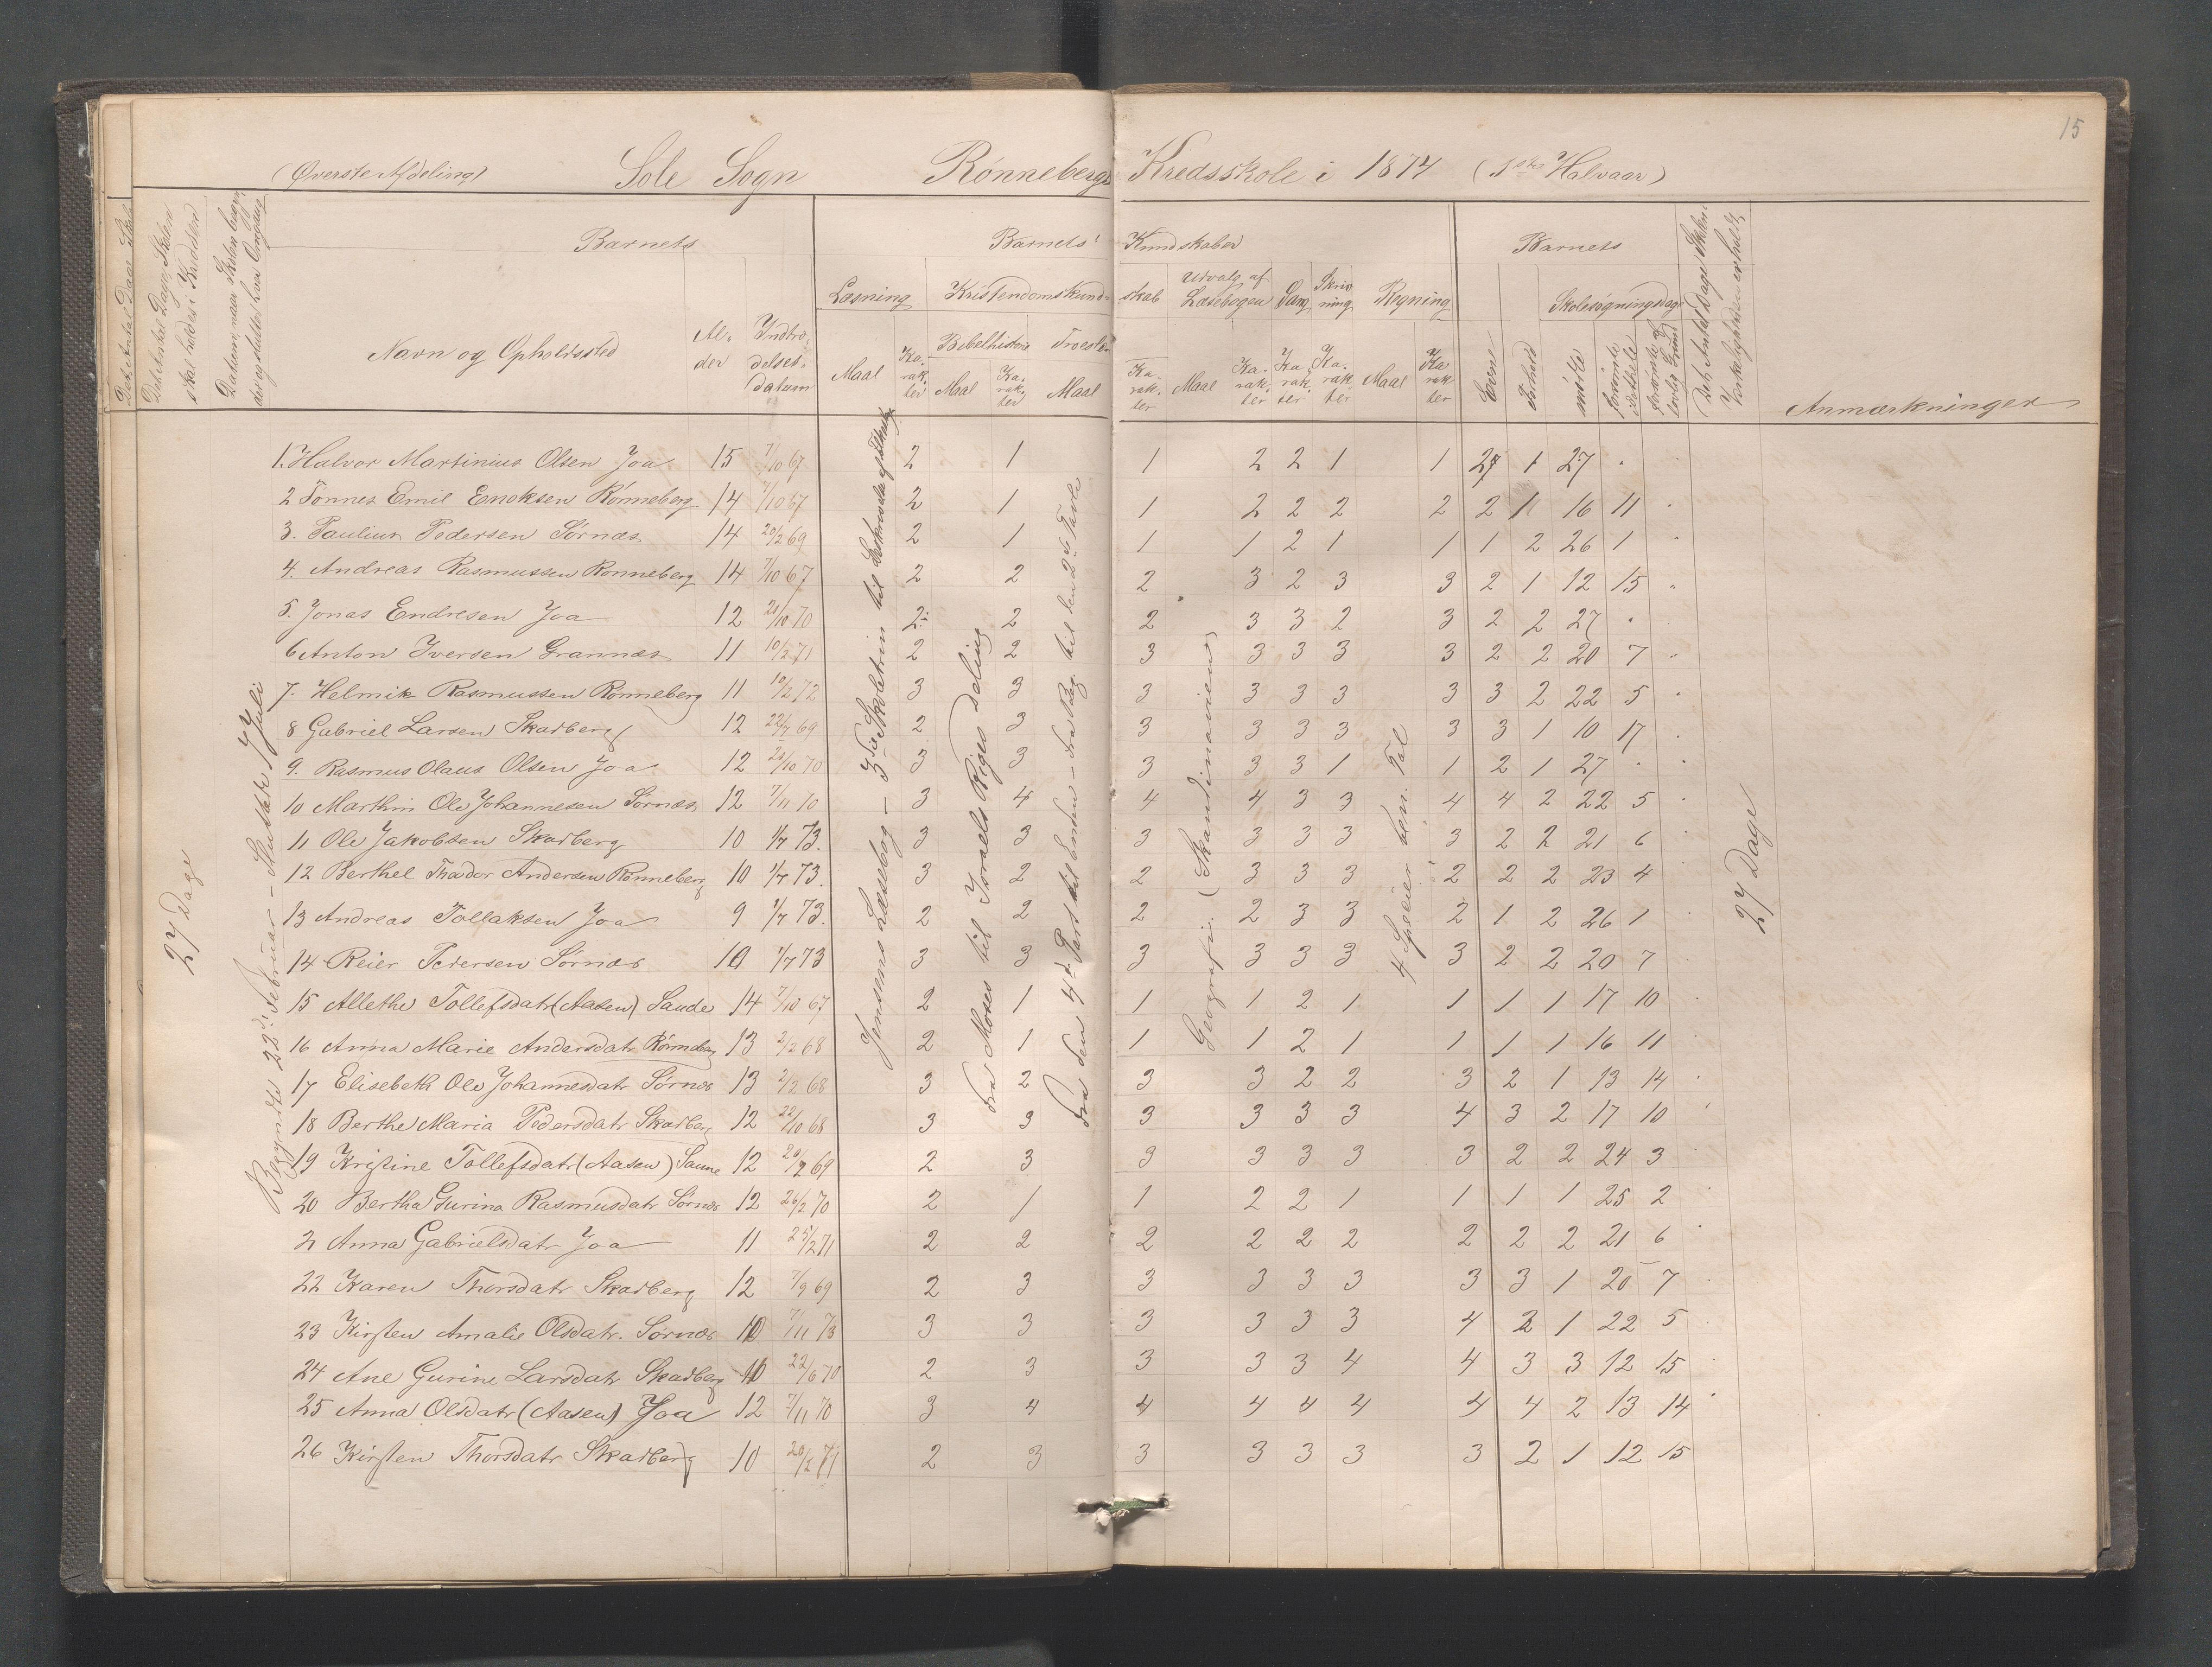 15
(Øverste Afdeling) Sole Sogn Rønnebergs Kredsskole i 1874 (1ste Halvaar)
Det Antal Dage Skolen skal holdes i Kredsen
Datum, naar Skolen begynder og slutter hver Omgang
Barnets
Navn og Opholdssted
Alder
Indtrædelsesdatum
Barnets Kundskaber
Læsning
Kristendomskundskab
Udvalg af Læsebogen
Sang
Skrivning
Regning
Maal
Karakter
Bibelhistorie
Maal
Karakter
Troeslære
Maal
Karakter
Maal
Karakter
Karakter
Karakter
Maal
Karakter
Barnets
Evne
Forhold
Skolesøgningsdage
mødte
forsømte i det hele
forsømte af lovlig Grund
Det Antal Dage Skolen i Virkeligheden er holdt
Anmærkninger
27 Dage
Begyndte 22de Februar - Sluttede 1 Juli
Jensens Læsebog - 3die Skoletrin til
Fra Moses til Israels Riges Deling
Fra den 4de Part til Enden - fra
Geografi. (Skandinavien)
4 Specier i ben. Tal
27 Dage
1. Halvor Martinius Olsen Joa 15 7/10 67 2 1 1 2 2 1 1 27 1 27 . .
2 Tønnes Emil Enoksen Rønneberg 14 7/10 67 2 1 1 2 2 2 2 2 1 16 11 .
3. Paulius Pedersen Sørnæs 14 20/2 69 2 1 1 1 2 1 1 1 2 26 1 .
4. Andreas Rasmussen Rønneberg 14 7/10 67 2 2 2 3 2 3 3 2 1 12 15 .
5. Jonas Endresen Joa 12 21/10 70 2 2 2 3 3 2 3 2 2 27 .
6 Anton Iversen Grannæs 11 10/2 71 2 2 3 3 3 3 3 2 2 20 7 .
7. Helmik Rasmussen Rønneberg 11 10/2 72 3 3 3 3 3 3 3 3 2 22 5 .
8 Gabriel Larsen Skadberg 12 22/7 69 2 3 3 3 3 3 3 3 1 10 17 .
9. Rasmus Olaus Olsen Joa 12 21/10 70 3 3 3 3 3 1 1 2 1 27 . .
10 Marthin Ole Johannesen Sørnæs 12 7/11 70 3 4 4 4 3 3 4 4 2 22 5 .
11 Ole Jakobsen Skadberg 10 1/7 73. 3 3 3 3 3 3 3 2 2 21 6
12 Berthel Theodor Andersen Rønneberg 10 1/7 73. 3 2 2 3 3 3 2 2 2 23 4
13 Andreas Tollaksen Joa 9 1/7 73. 2 2 2 2 3 3 2 1 2 26 1 .
14 Reier Pedersen Sørnæs 10 1/7 73 3 3 3 3 3 3 3 2 2 20 7 .
15 Allethe Tollefsdatr (Aasen) Sande 14 7/10 67 2 1 1 1 2 1 1 1 1 17 10 .
16 Anna Marie Andersdatr Rønneberg 13 2/2 68 2 1 1 1 2 1 1 1 1 16 11 .
17 Elisebeth Ole Johannesdatr Sørnæs 13 2/2 68 3 2 3 3 2 2 3 2 1 13 14 .
18 Berthe Maria Pedersdatr Skadberg 12 22/10 68 3 3 3 3 3 3 4 3 2 17 10 .
19 Kristine Tollefsdatr (Aasen) Sanne 12 20/2 69 2 3 3 3 3 3 3 2 2 24 3 .
20 Bertha Gurina Rasmusdatr Sørnæs 12 26/2 70 2 1 1 2 2 1 1 1 1 25 2 .
21 Anna Gabrielsdatr Joa 11 25/2 71 2 2 2 2 2 2 2 2 2 21 6 .
22 Karen Thorsdatr Skadberg 12 7/9 69 2 3 3 3 3 3 3 3 1 20 7 .
23 Kirsten Amalie Olsdatr. Sørnæs 10 7/11 73 3 3 3 3 3 3 4 2 1 22 5 .
24 Ane Gurine Larsdatr Skadberg 10 22/6 70 2 3 3 3 3 4 4 3 3 12 15 .
25 Anna Olsdatr (Aasen) Joa 12 7/11 70 3 4 4 4 4 4 4 4 2 13 14 .
26 Kirsten Thorsdatr Skadberg 10 20/2 71 2 3 3 3 3 3 3 2 1 12 15